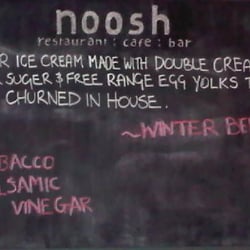 noosh
restaurant : cafe : bar
R ICE CREAM MADE WITH DOUBLE CREA
SUGER & FREE RANGE EGG YOLKS T
CHURNED IN HOUSE.
~WINTER BE
BACCO
LSAMIC
VINEGAR